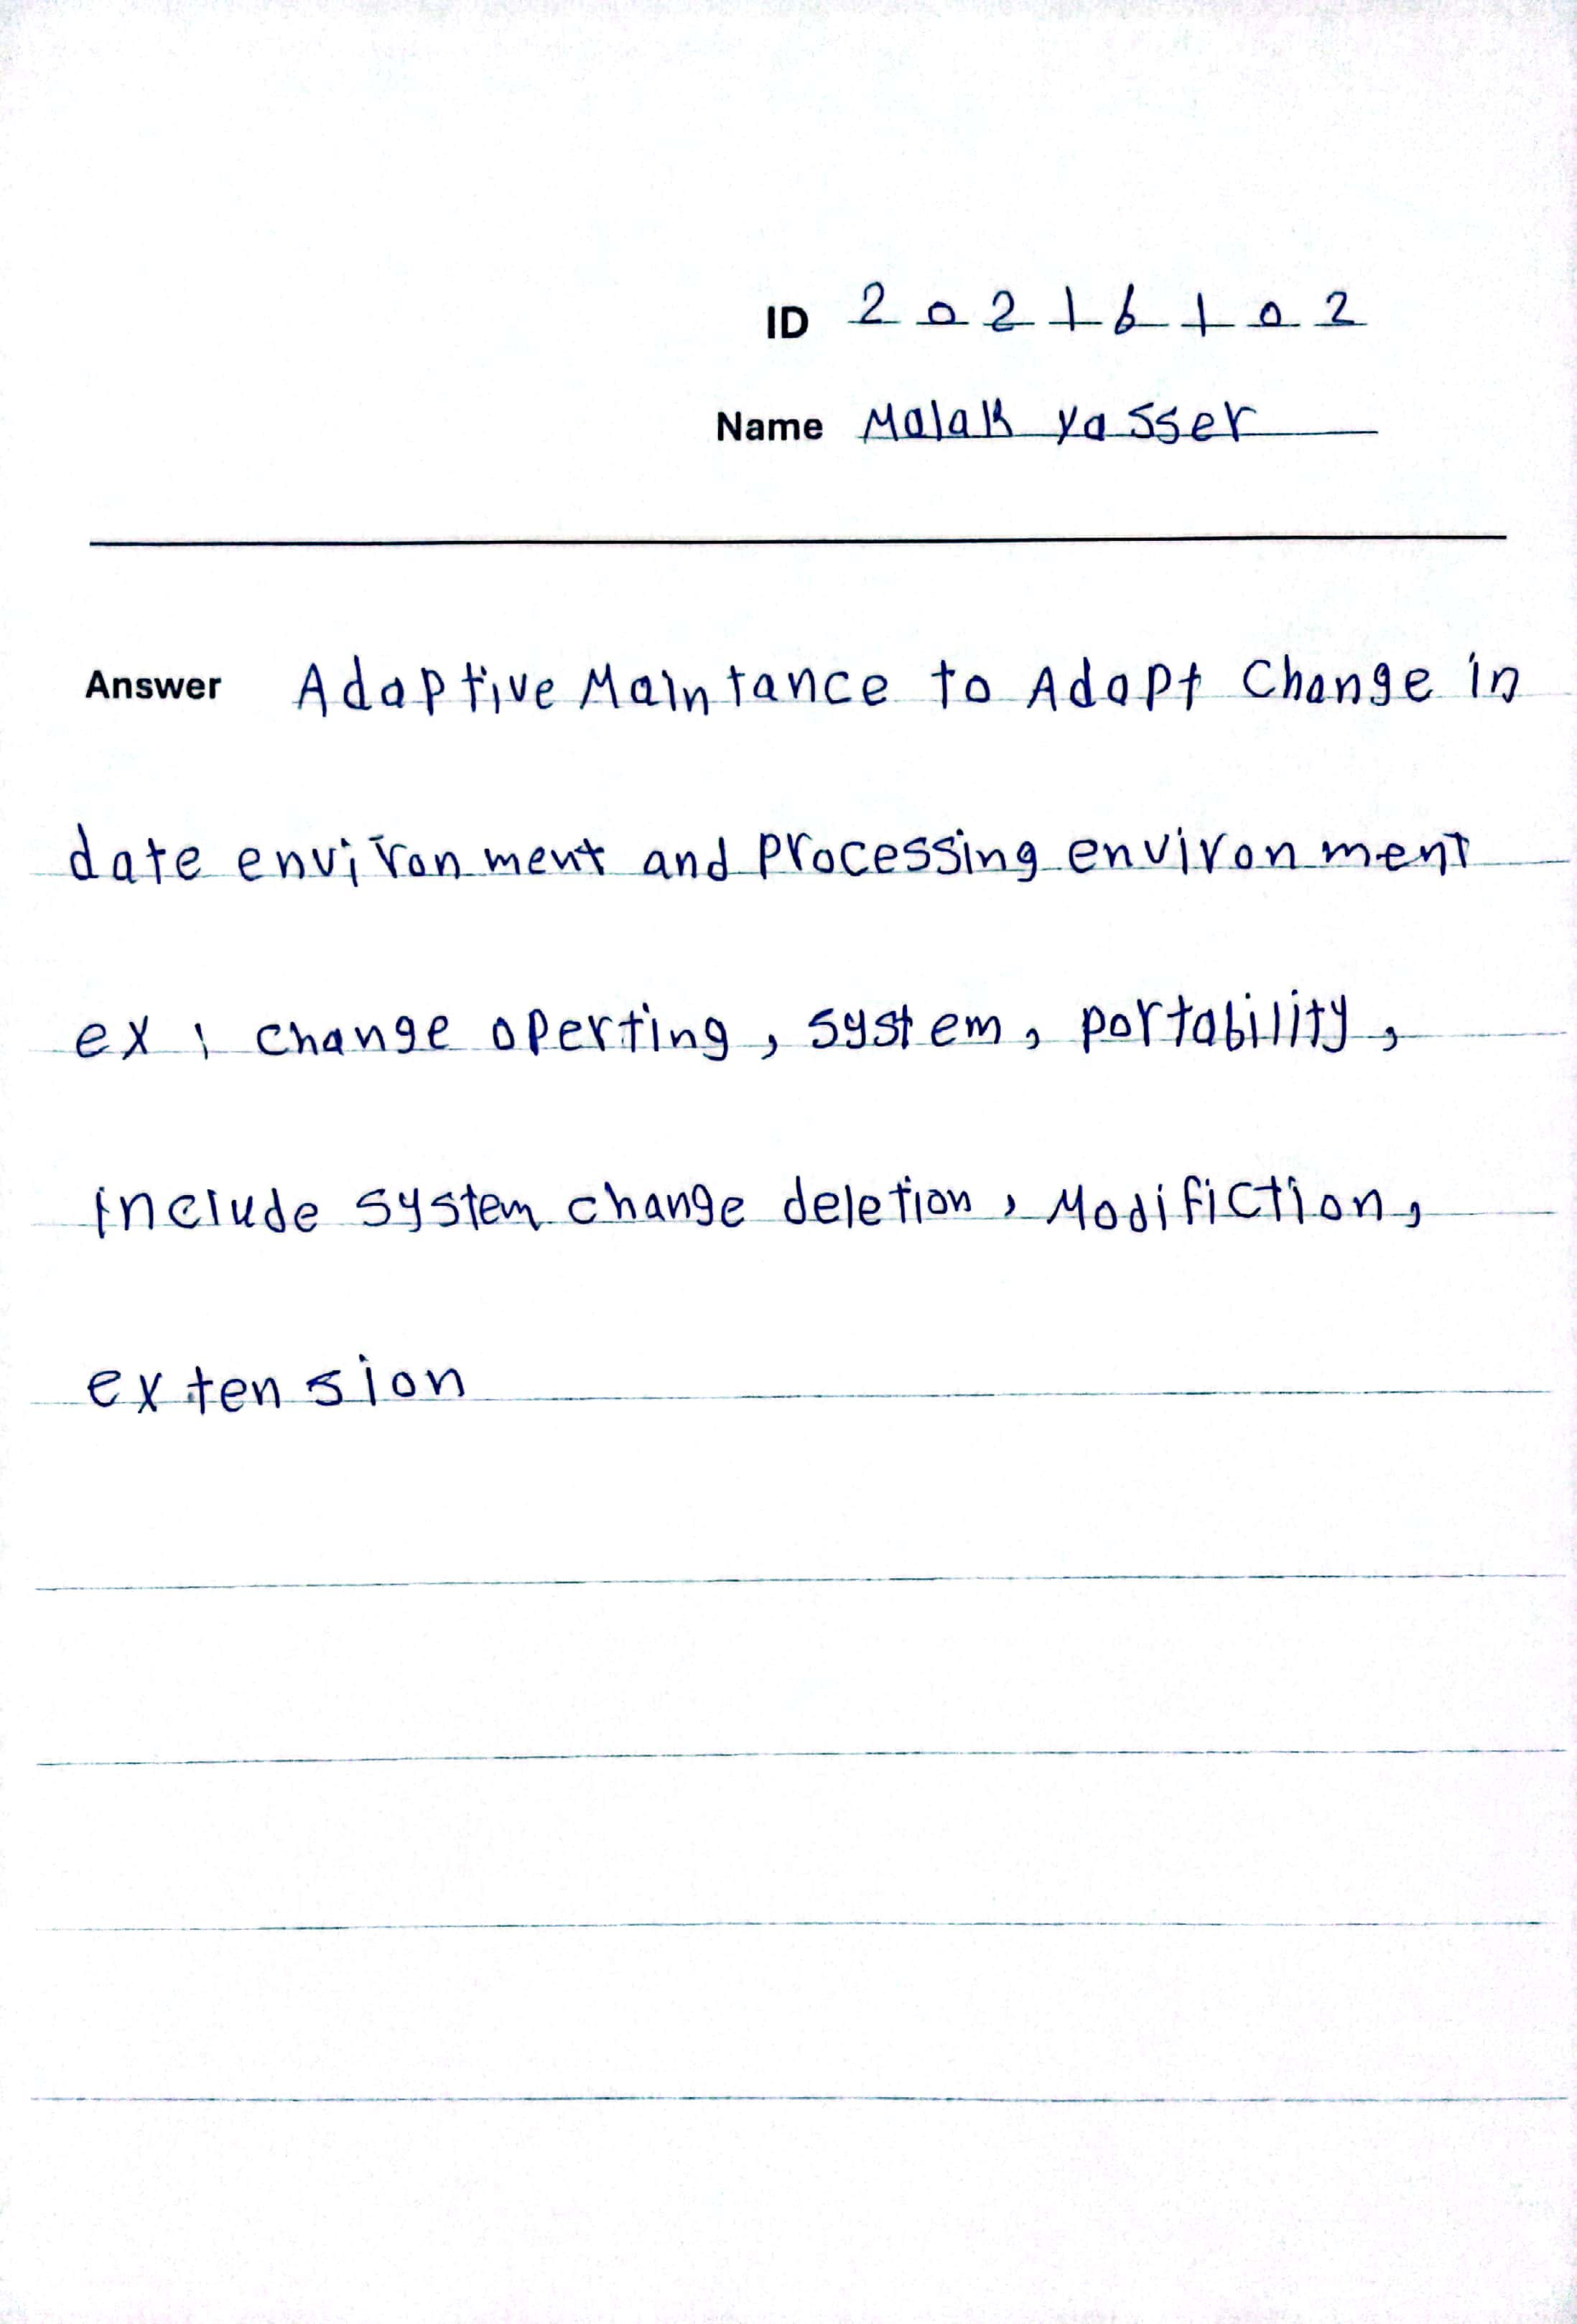 ID 20216102
Name Malak yasser
Answer Adaptive Maintance to Adapt Change in
date environment and processing environment
ex : change operting , system , portability ,
include system change deletion , Modifiction ,
extension